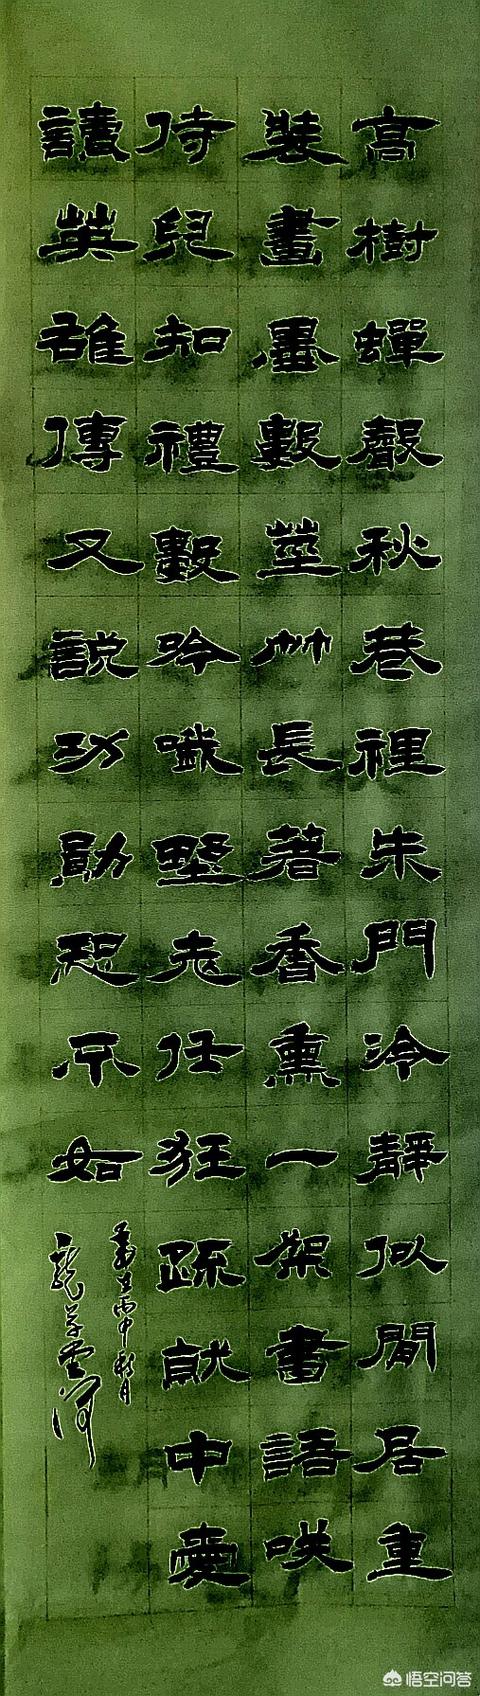 高樹蟬聲秋巷裡朱門冷靜似閒居重
裝畫墨數莖竹長著香熏一架書語咲
侍兒知禮數吟哦野老任狂疏就中愛
讀英雄傳又說功勛恐不如
丙申秋月
悟空问答